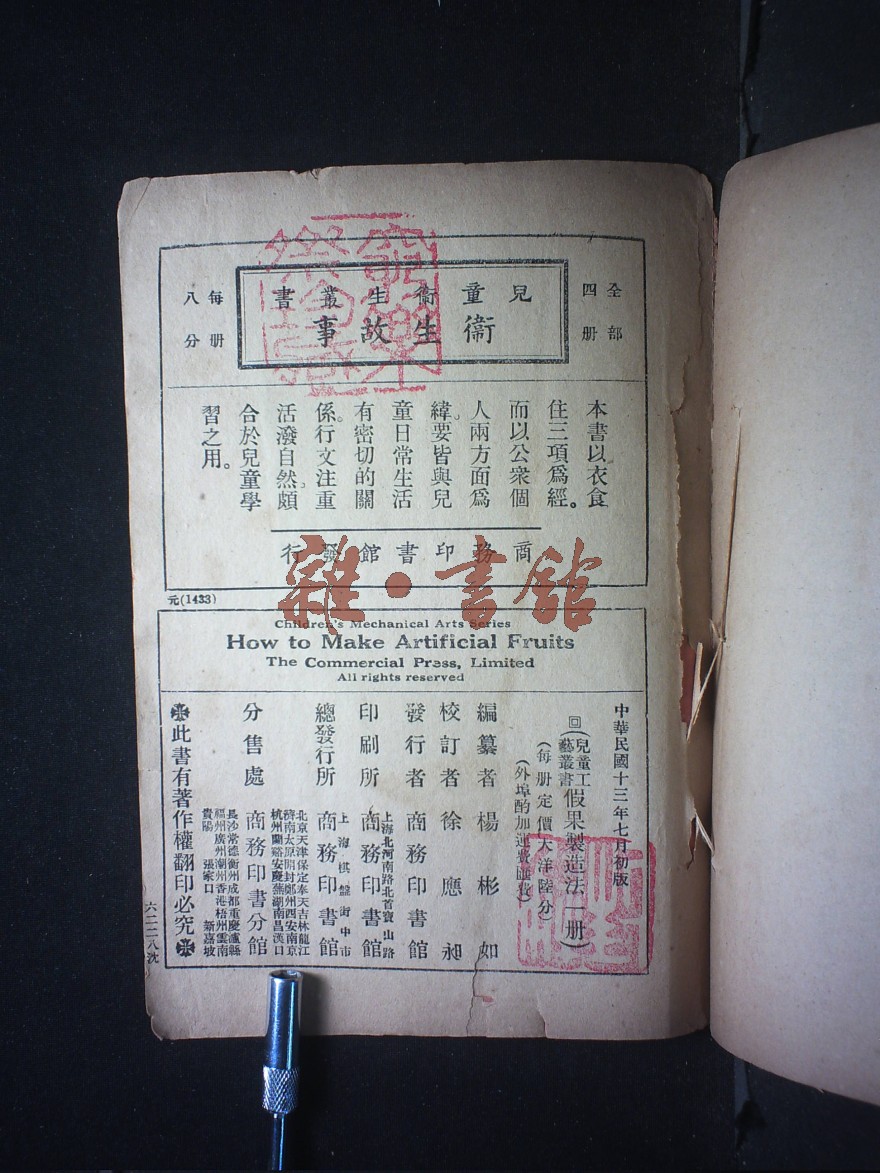 全部四册
兒童衞生叢書
衞生故事
每册八分
本書以衣食
住三項爲經。
而以公衆個
人兩方面爲
緯。要皆與兒
童日常生活
有密切的關
係。行文注重
活潑自然。頗
合於兒童學
習之用。
商務印書館發行
元(1433)
雜·書館
Children's Mechanical Arts Series
How to Make Artificial Fruits
The Commercial Press, Limited
All rights reserved
中華民國十三年七月初版
回(兒童工藝叢書)假果製造法(一册)
(每册定價大洋陸分)
(外埠酌加運費匯費)
編纂者 楊彬如
校訂者 徐應昶
發行者 商務印書館
印刷所 上海北河南路北首寶山路 商務印書館
總發行所 上海棋盤街中市 商務印書館
分售處 商務印書分館
北京天津保定奉天吉林龍江
濟南太原開封鄭州西安南京
杭州蘭谿安慶蕪湖南昌漢口
長沙常德衡州成都重慶瀘縣
福州廣州潮州香港梧州雲南
貴陽 張家口 新嘉坡
此書有著作權翻印必究
六二二八沈